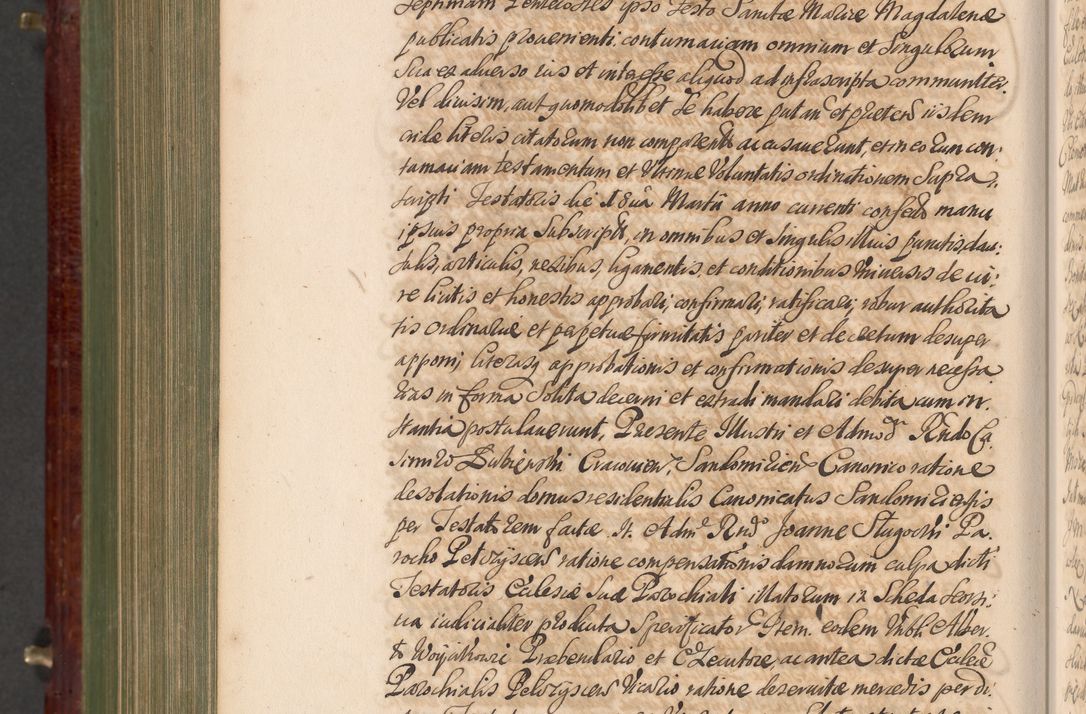 Septimam Pentecostes ipso Festo Sanctæ Mariæ Magdalenæ
publicatis provenienti contumaciam omnium et Singulorum
Sua ex adverso ius et interesse aliquod ad infrascripta communiter
Vel divisim, aut quomodolibet Se habere putan et præten iisdem
cridæ literis citatorum non comparentt accusaverunt, et in eorum con:
tumaciam testamentum et Ultimæ Voluntatis ordinationem Supra
scripti Testatoris die Martii anno currenti confect manu
ipsius propria Subscript, in omnibus et Singulis illius punctis, clau:
sulis, articulis, nexibus, ligamentis, et conditionibus Universis de iu:
re licitis et honestis approbari, confirmari, ratificari, robur authorita
tis ordinariæ et perpetuæ firmitatis pariter et decretum desuper
apponi, literasq approbationis et confirmationis desuper necessa
rias in forma Solita decerni et extradi mandari debita cum in:
stantia postulaverunt, Præsente Illustri et Admod Rndo Ca
simiro Lubienski Cracovien, Sandomirien Canonico ratione
desolationis domus residentialis Canonicatus Sandomiriensis
per Testatorem factæ. It. Adm Rnd Joanne Pa:
rocho Pelczyscen ratione compensationis damnorum culpa dicti
Testatoris Ecclesiæ Suæ Parochiali illatorum in Sheda Seorsi:
va iudicialiter producta Specificator Item eodem Vnbli Alber:
to Woycikowic Præbendario et Executore, ac antea dictæ Eccles
Parochialis Pelczyscen Vicario ratione deservitæ mercedis per di: